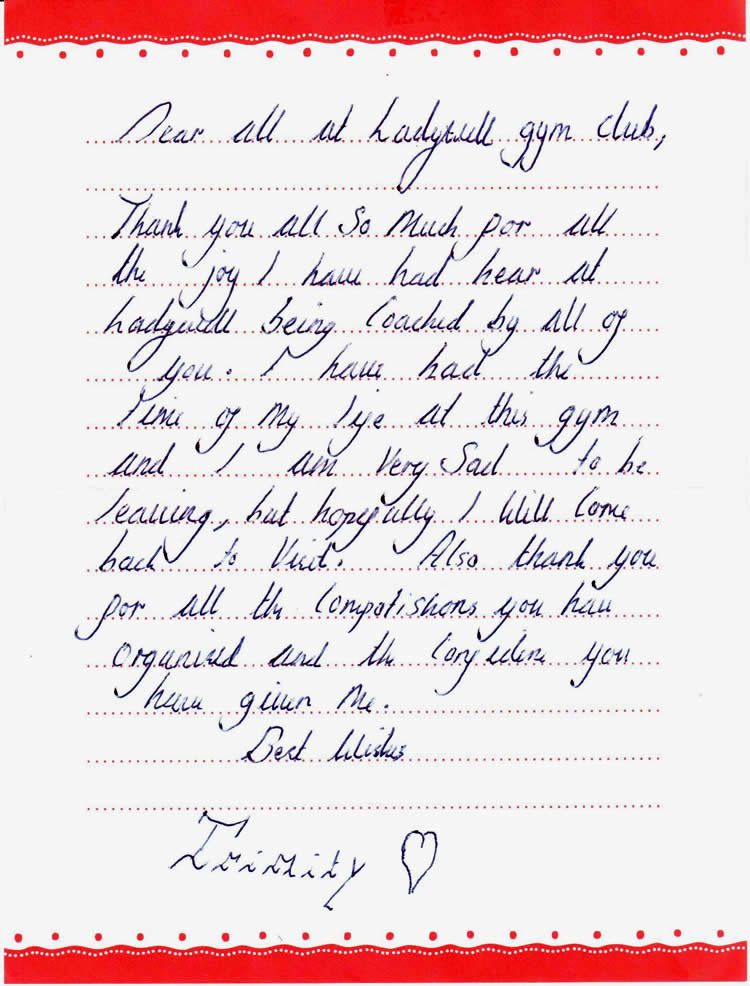 Dear all at Ladywell gym club,
Thank you all so much for all
the joy I have had hear at
Ladywell being coached by all of
you. I have had the
time of my life at this gym
and I am very sad to be
leaving, but hopefully I will come
back to visit. Also thank you
for all the compatishons you have
organised and the confidence you
have given me.
Best wishes
Trinity